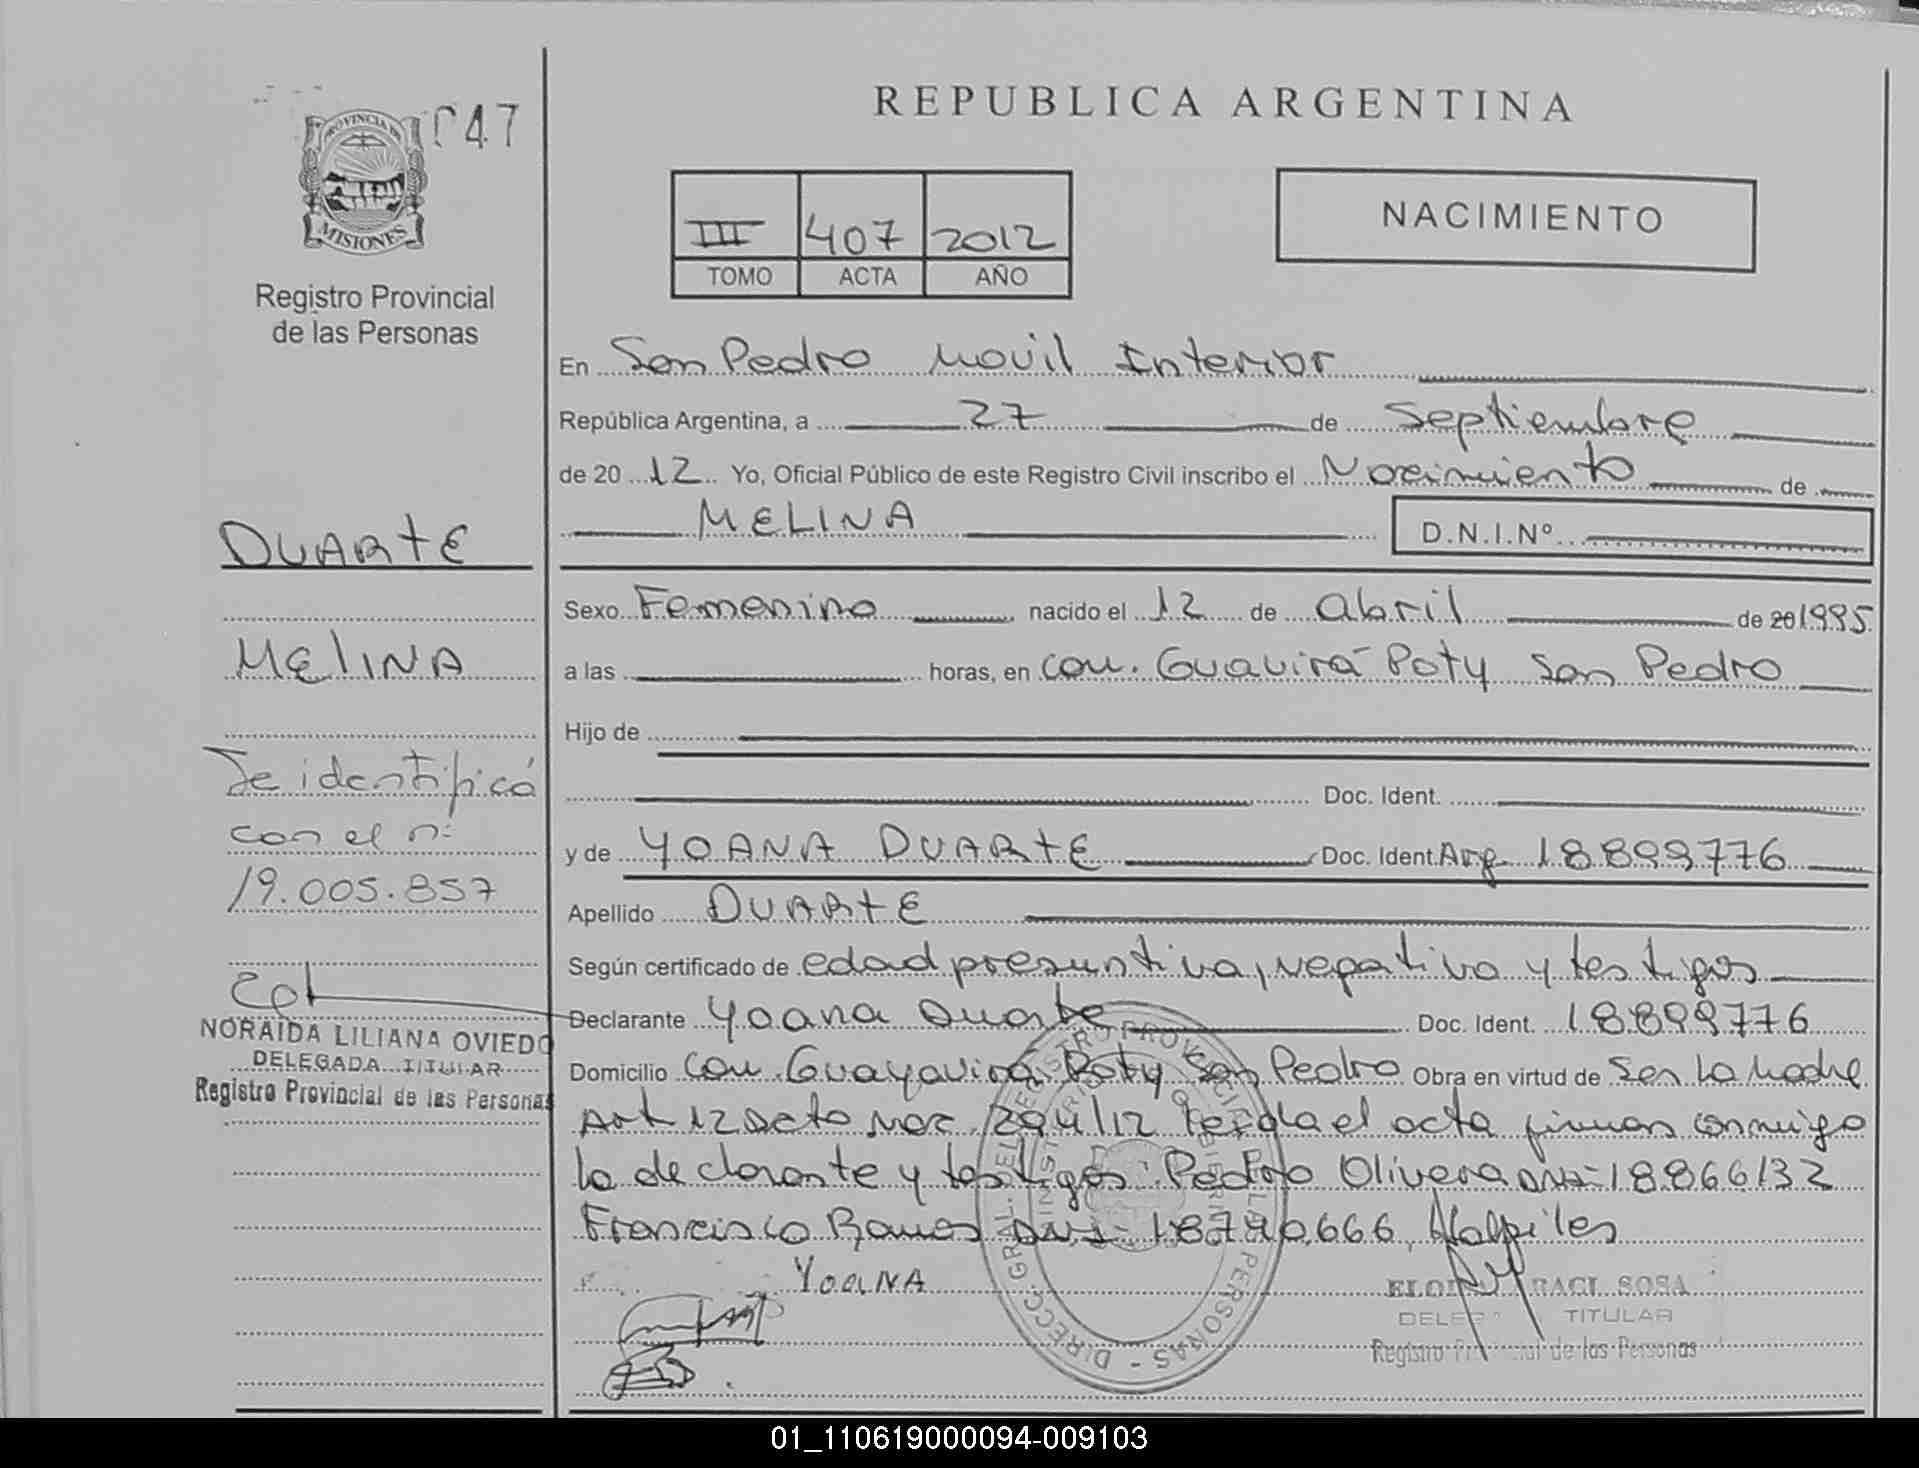 PROVINCIA DE
MISIONES
047
Registro Provincial
de las Personas
DUARTE
MELINA
Se identificó
con el nº
19.005.857
NORAIDA LILIANA OVIEDO
DELEGADA TITULAR
Registro Provincial de las Personas
REPUBLICA ARGENTINA
III 407 2012
TOMO ACTA AÑO
NACIMIENTO
En San Pedro Movil Interior
República Argentina, a 27 de Septiembre
de 20 12 Yo, Oficial Público de este Registro Civil inscribo el Nacimiento de
MELINA D.N.I.Nº
Sexo Femenino nacido el 12 de abril de 20 1995
a las horas, en com. Guavirá Poty San Pedro
Hijo de
Doc. Ident.
y de YOANA DUARTE Doc. Ident. Arg 18899776
Apellido DUARTE
Según certificado de edad presuntiva, negativa y testigos
Declarante Yoana Duarte Doc. Ident. 18899776
Domicilio com. Guayavirá Poty San Pedro Obra en virtud de Ser la Madre
Art 12 Dcto Nac 294/12 Leída el acta firman conmigo
la declarante y testigos: Pedro Olivera DNI 18866132
Francisco Ramos DNI 18790.666,
YOANA
SOSA
TITULAR
Registro Provincial de las Personas
DIRECC. GRAL. DEL REGISTRO PROVINCIAL DE LAS PERSONAS
01_110619000094-009103